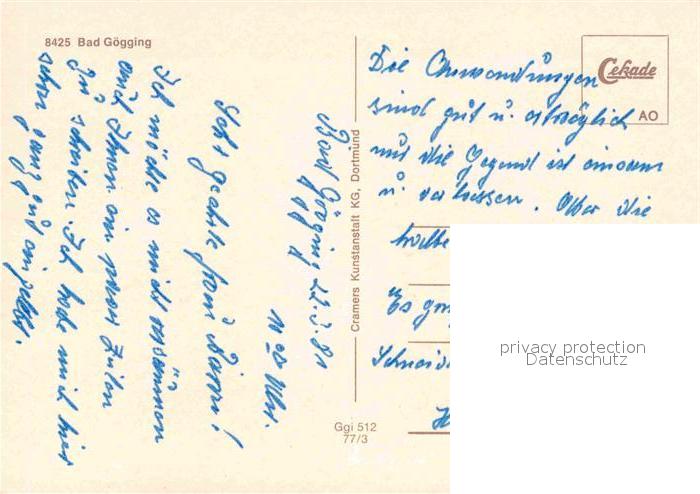 8425 Bad Gögging
Bad Gögging 22.3.81
Uhr.
Sehr geehrte Frau
Ich möchte es nicht versäumen
auch Ihnen ein paar Zeilen
zu schreiben. Ich habe mich hier
schon ganz gut eingelebt.
Cramers Kunstanstalt KG, Dortmund
Ggi 512
77/3
Cekade
AO
Die Anwendungen
sind gut u. erträglich
nur die Gegend ist einsam
u. verlassen. Aber die
Es
privacy protection
Datenschutz